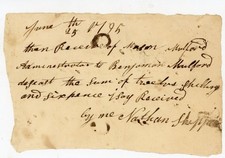 June th 25 1735
than Received of Mason Mulford
Administrator to Benjamin Mulford
desest the Sum of twelve Shilling
and Sixpence I Say Received
by me Nathan Sheppard